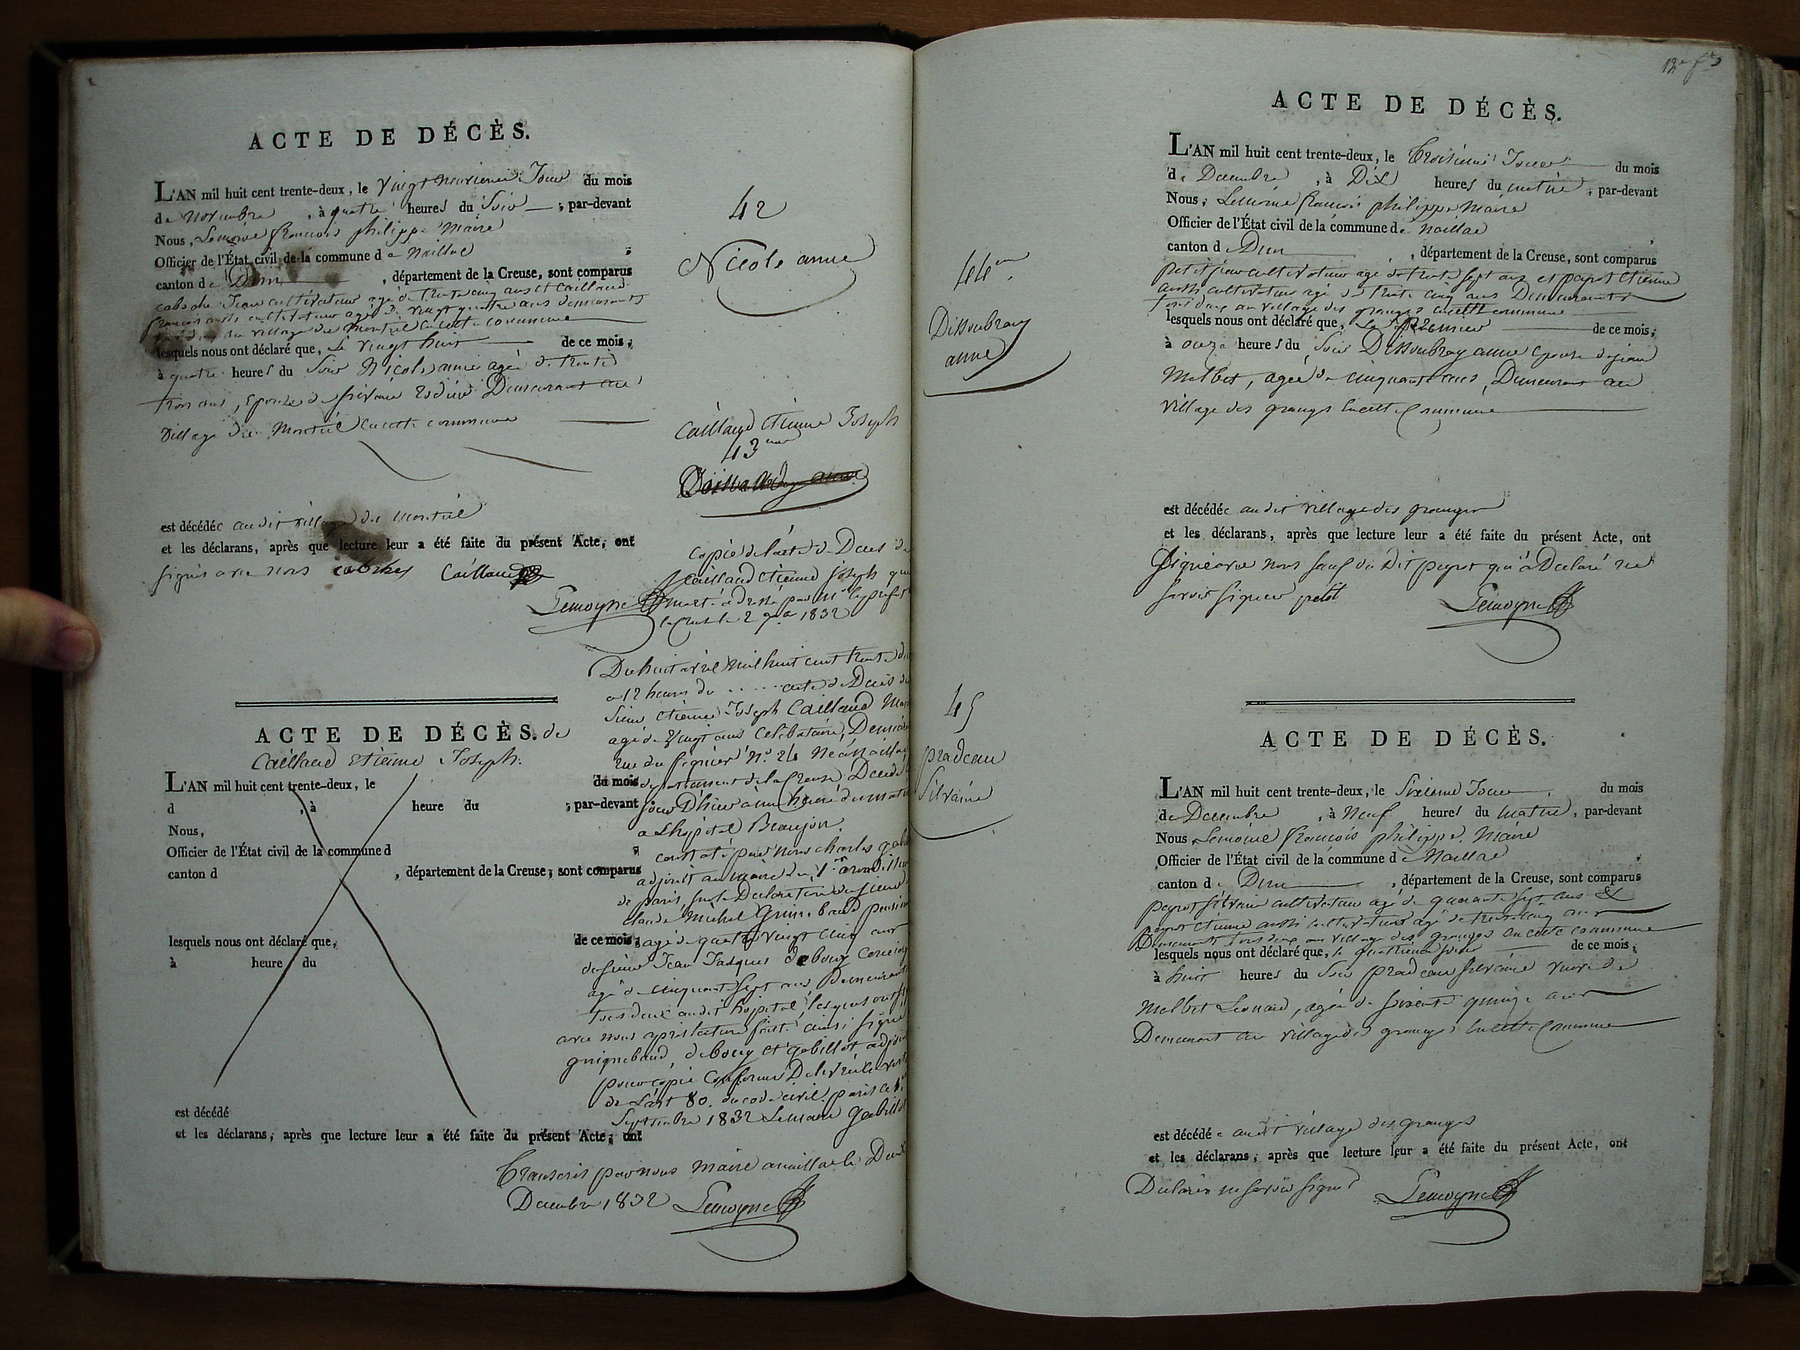 ACTE DE DÉCÈS.
L'AN mil huit cent trente-deux, le vingt neuvieme Jour du mois
de Novembre, à quatre heures du Soir, par-devant
Nous, Lemoine françois philippe Maire
Officier de l'État civil de la commune de Naillac
canton de Dun, département de la Creuse, sont comparus
Jean cultivateur agé de trente cinq ans et Caillaud
françois aussi cultivateur agé de vingt quatre ans demeurants
du village du Monteil en cette commune
lesquels nous ont déclaré que, le vingt huit de ce mois,
à quatre heures du Soir Nicole anne agée de trente
trois ans, Epouse de Demeurant au
village du Monteil en cette commune
est décédée au dit village du Monteil
et les déclarans, après que lecture leur a été faite du présent Acte, ont
signés avec nous Caillaud
Lemoyne
42
Nicole anne
Caillaud Etienne Joseph
43
Copie de l'acte de Deces de
Caillaud Etienne Joseph
adressé par Mr le prefet
1832
ACTE DE DÉCÈS. de
Caillaud Etienne Joseph.
L'AN mil huit cent trente-deux, le du mois
d , à heure du , par-devant
Nous,
Officier de l'État civil de la commune d
canton d , département de la Creuse, sont comparus
lesquels nous ont déclaré que, de ce mois,
à heure du
est décédé
et les déclarans, après que lecture leur a été faite du présent Acte, ont
Du huit avril mil huit cent trente deux
a 12 heures du ..... acte de Deces de
Sieur Etienne Joseph Caillaud
agé de vingt ans Celibataire, Demeurant
rue du figuier No. 24 Né a Naillac
departement de la Creuse Decedé
jour D'hier a une heure du matin
a L'hopital Beaujon.
constaté par nous charles
adjoint au maire du 1er arrondissement
de paris, sur la Declaration de sieur
claude Michel
agé de quatre vingt cinq ans
de sieur Jean Jacques debouy
agé de cinquante sept ans Demeurant
tous deux au dit hopital, lesquels ont
avec nous après lecture faite ainsi signé
debouy et gabillot adjoint
pour copie Conforme Delivrée
de L'art 80. du code civil. paris
Septembre 1832 Le maire gabillot
Transcris par nous Maire a naillac le Deux
Decembre 1832 Lemoyne
ACTE DE DÉCÈS.
L'AN mil huit cent trente-deux, le Troisieme Jour du mois
de Decembre, à Dix heures du matin, par-devant
Nous, Lemoine françois philippe Maire
Officier de l'État civil de la commune de Naillac
canton de Dun, département de la Creuse, sont comparus
petit cultivateur agé de trente sept ans et peyrot Etienne
aussi cultivateur agé de trente cinq ans Demeurants
tous deux au village des granges en cette commune
lesquels nous ont déclaré que, Le Premier de ce mois,
à onze heures du Soir Dessoubray anne epouse de jean
Malbet, agée de cinquante ans, Demeurant au
village des granges en cette Commune
est décédée au dit village des granges
et les déclarans, après que lecture leur a été faite du présent Acte, ont
Signé avec nous sauf le Dit peyrot qui a Declaré ne
savoir signer petit Lemoyne
44
Dessoubray
anne
45
pradeau
Silvaine
ACTE DE DÉCÈS.
L'AN mil huit cent trente-deux, le Sixieme Jour du mois
de Decembre, à Neuf heures du matin, par-devant
Nous, Lemoine françois philippe Maire
Officier de l'État civil de la commune de Naillac
canton de Dun, département de la Creuse, sont comparus
peyrot Silvain cultivateur agé de quarante sept ans Et
peyrot Etienne aussi cultivateur agé de trente cinq ans
Demeurants tous deux au village des granges en cette commune
lesquels nous ont déclaré que, le quatrieme jour de ce mois,
à huit heures du Soir pradeau Silvaine veuve de
Malbet Leonard, agée de soixante quinze ans
Demeurant au village des granges en cette Commune
est décédée au dit village des granges
et les déclarans, après que lecture leur a été faite du présent Acte, ont
Declarés ne savoir signer Lemoyne